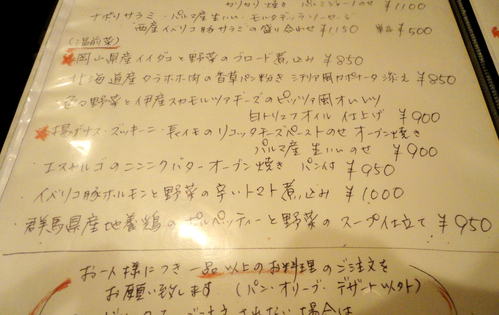 カリカリ焼き ¥1100
ナポリサラミ・パルマ産生ハム・モルタデッラソーセージ
西産イベリコ豚サラミの盛り合わせ ¥1150 単品 ¥500
(温前菜)
岡山県産イイダコと野菜のブロード煮込み ¥850
北海道産タラホホ肉の香草パン粉焼き シチリア風カポナータ添え ¥850
色々野菜と伊産スカモルツァチーズのピッツァ風オムレツ
白トリュフオイル仕上げ ¥900
揚げナス・ズッキーニ・長イモのリコッタチーズペーストのせ オーブン焼き
パルマ産生ハムのせ ¥900
・エスカルゴのニンニクバターオーブン焼き パン付 ¥950
イベリコ豚ホルモンと野菜の辛いトマト煮込み ¥1000
群馬県産地養鶏のポルペッティーと野菜のスープ仕立て ¥950
お一人様につき一品以上のお料理のご注文を
お願い致します (パン・オリーブ・デザート以外)
ご注文されない場合は